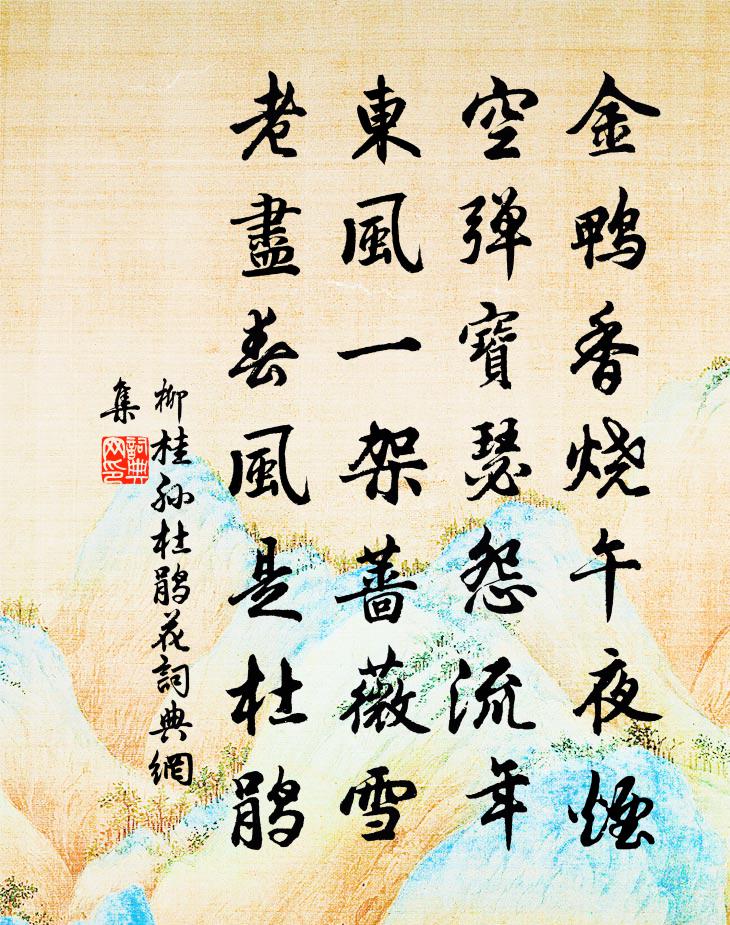 金鴨香烧午夜煙
空弾寶瑟怨流年
東風一架薔薇雪
老盡春風是杜鹃
柳桂孙杜鹃花詞典網
集
詞典
网印